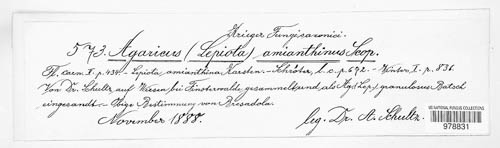 Krieger Fungi saxonici.
573. Agaricus (Lepiota) amianthinus Scop.
Fl. carn. I. p. 434. – Lepiota amianthina Karsten. – Schröter, l. c. p. 672. – Winter, I. p. 836.
Von Dr. Schultz auf Wiesen bei Finsterwalde gesammelt und als Ag. (Lep.) granulosus Batsch
eingesandt. – Obige Bestimmung von Bresadola.
November 1888. leg. Dr. A. Schultz.
US NATIONAL FUNGUS COLLECTIONS
978831